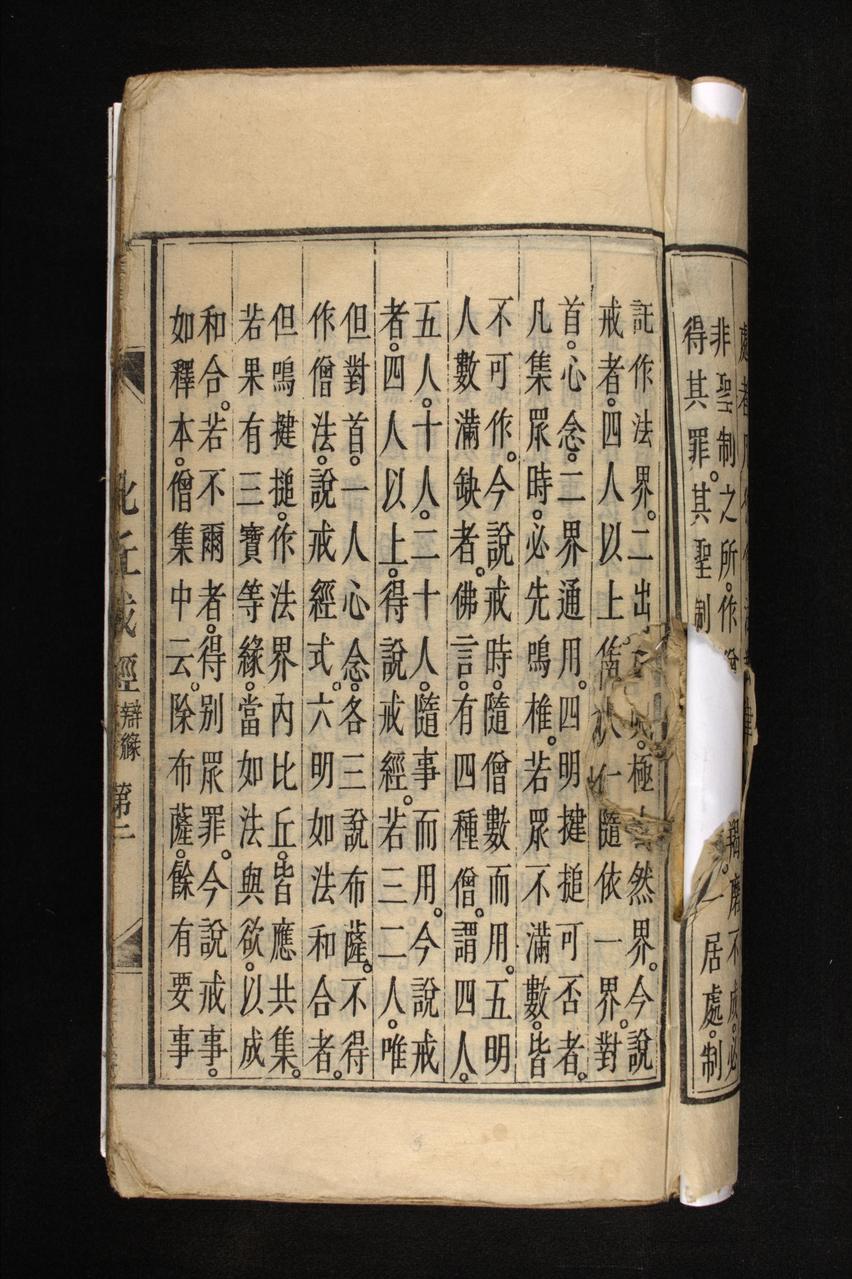 處者
非聖制之所。作羯磨不成。必
得其罪。其聖制一居處。制
託作法界。二出極然界。今說
戒者。四人以上隨依一界。對
首。心念。二界通用。四明揵搥可否者。
凡集眾時。必先鳴椎。若眾不滿數。皆
不可作。今說戒時。隨僧數而用。五明
人數滿缺者。佛言。有四種僧。謂四人。
五人。十人。二十人。隨事而用。今說戒
者。四人以上。得說戒經。若三二人。唯
但對首。一人心念。各三說布薩。不得
作僧法。說戒經式。六明如法和合者。
但鳴揵搥。作法界內比丘。皆應共集。
若果有三寶等緣。當如法與欲。以成
和合。若不爾者。得別眾罪。今說戒事。
如釋本。僧集中云。除布薩。餘有要事
比丘戒經 辯緣 第二